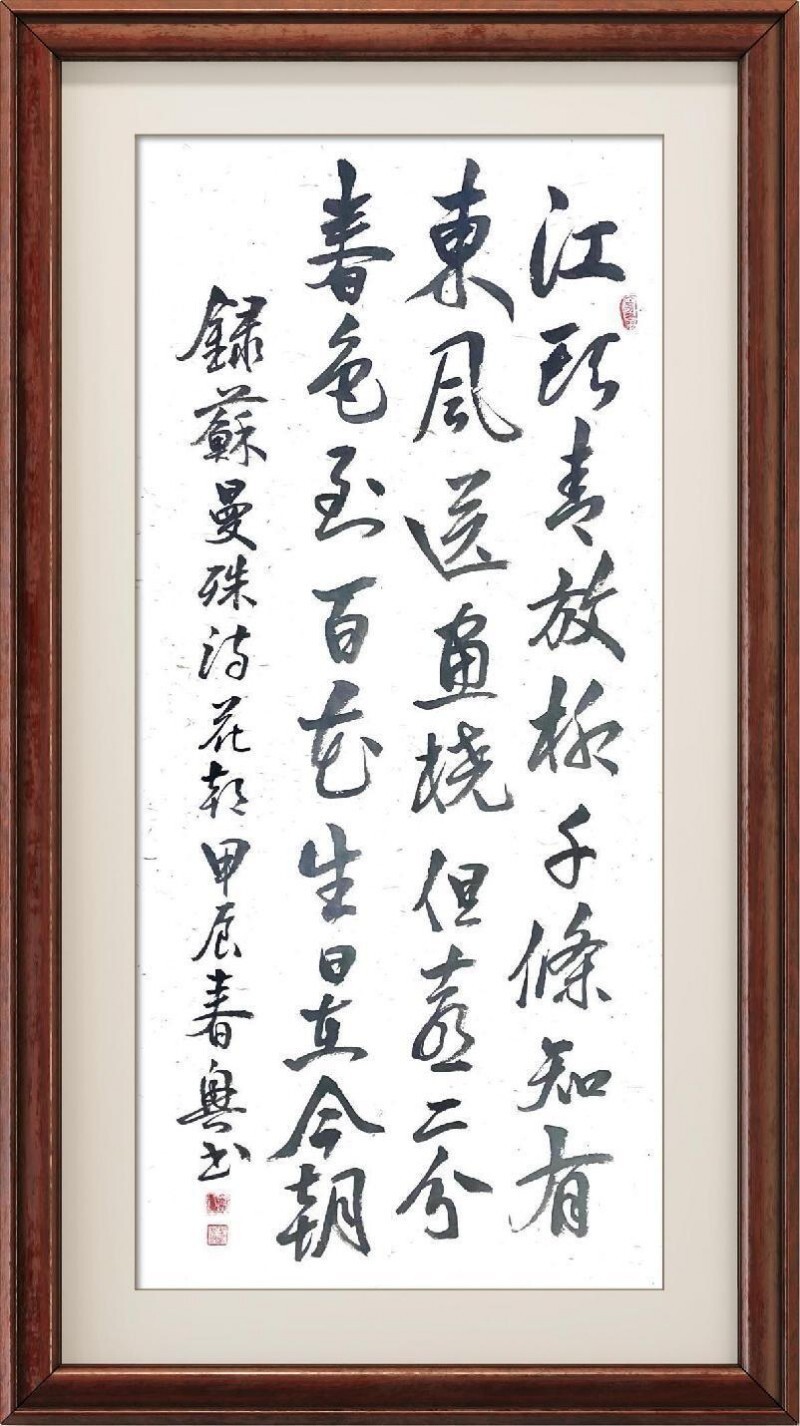 江頭青放柳千條知有
東風送畫橈但喜二分
春色到百花生日是今朝
錄蘇曼殊詩花朝甲辰春興书